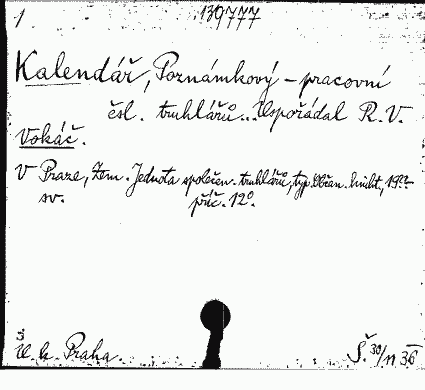 1 139777
Kalendář, Poznámkový – pracovní
čsl. truhlářů... Uspořádal R. V.
Vokáč.
V Praze, Zem. Jednota společen. truhlářů, typ. Občan. kniht., 19??–
sv. příč. 12°.
U. k. Praha. Š. 30/11 36